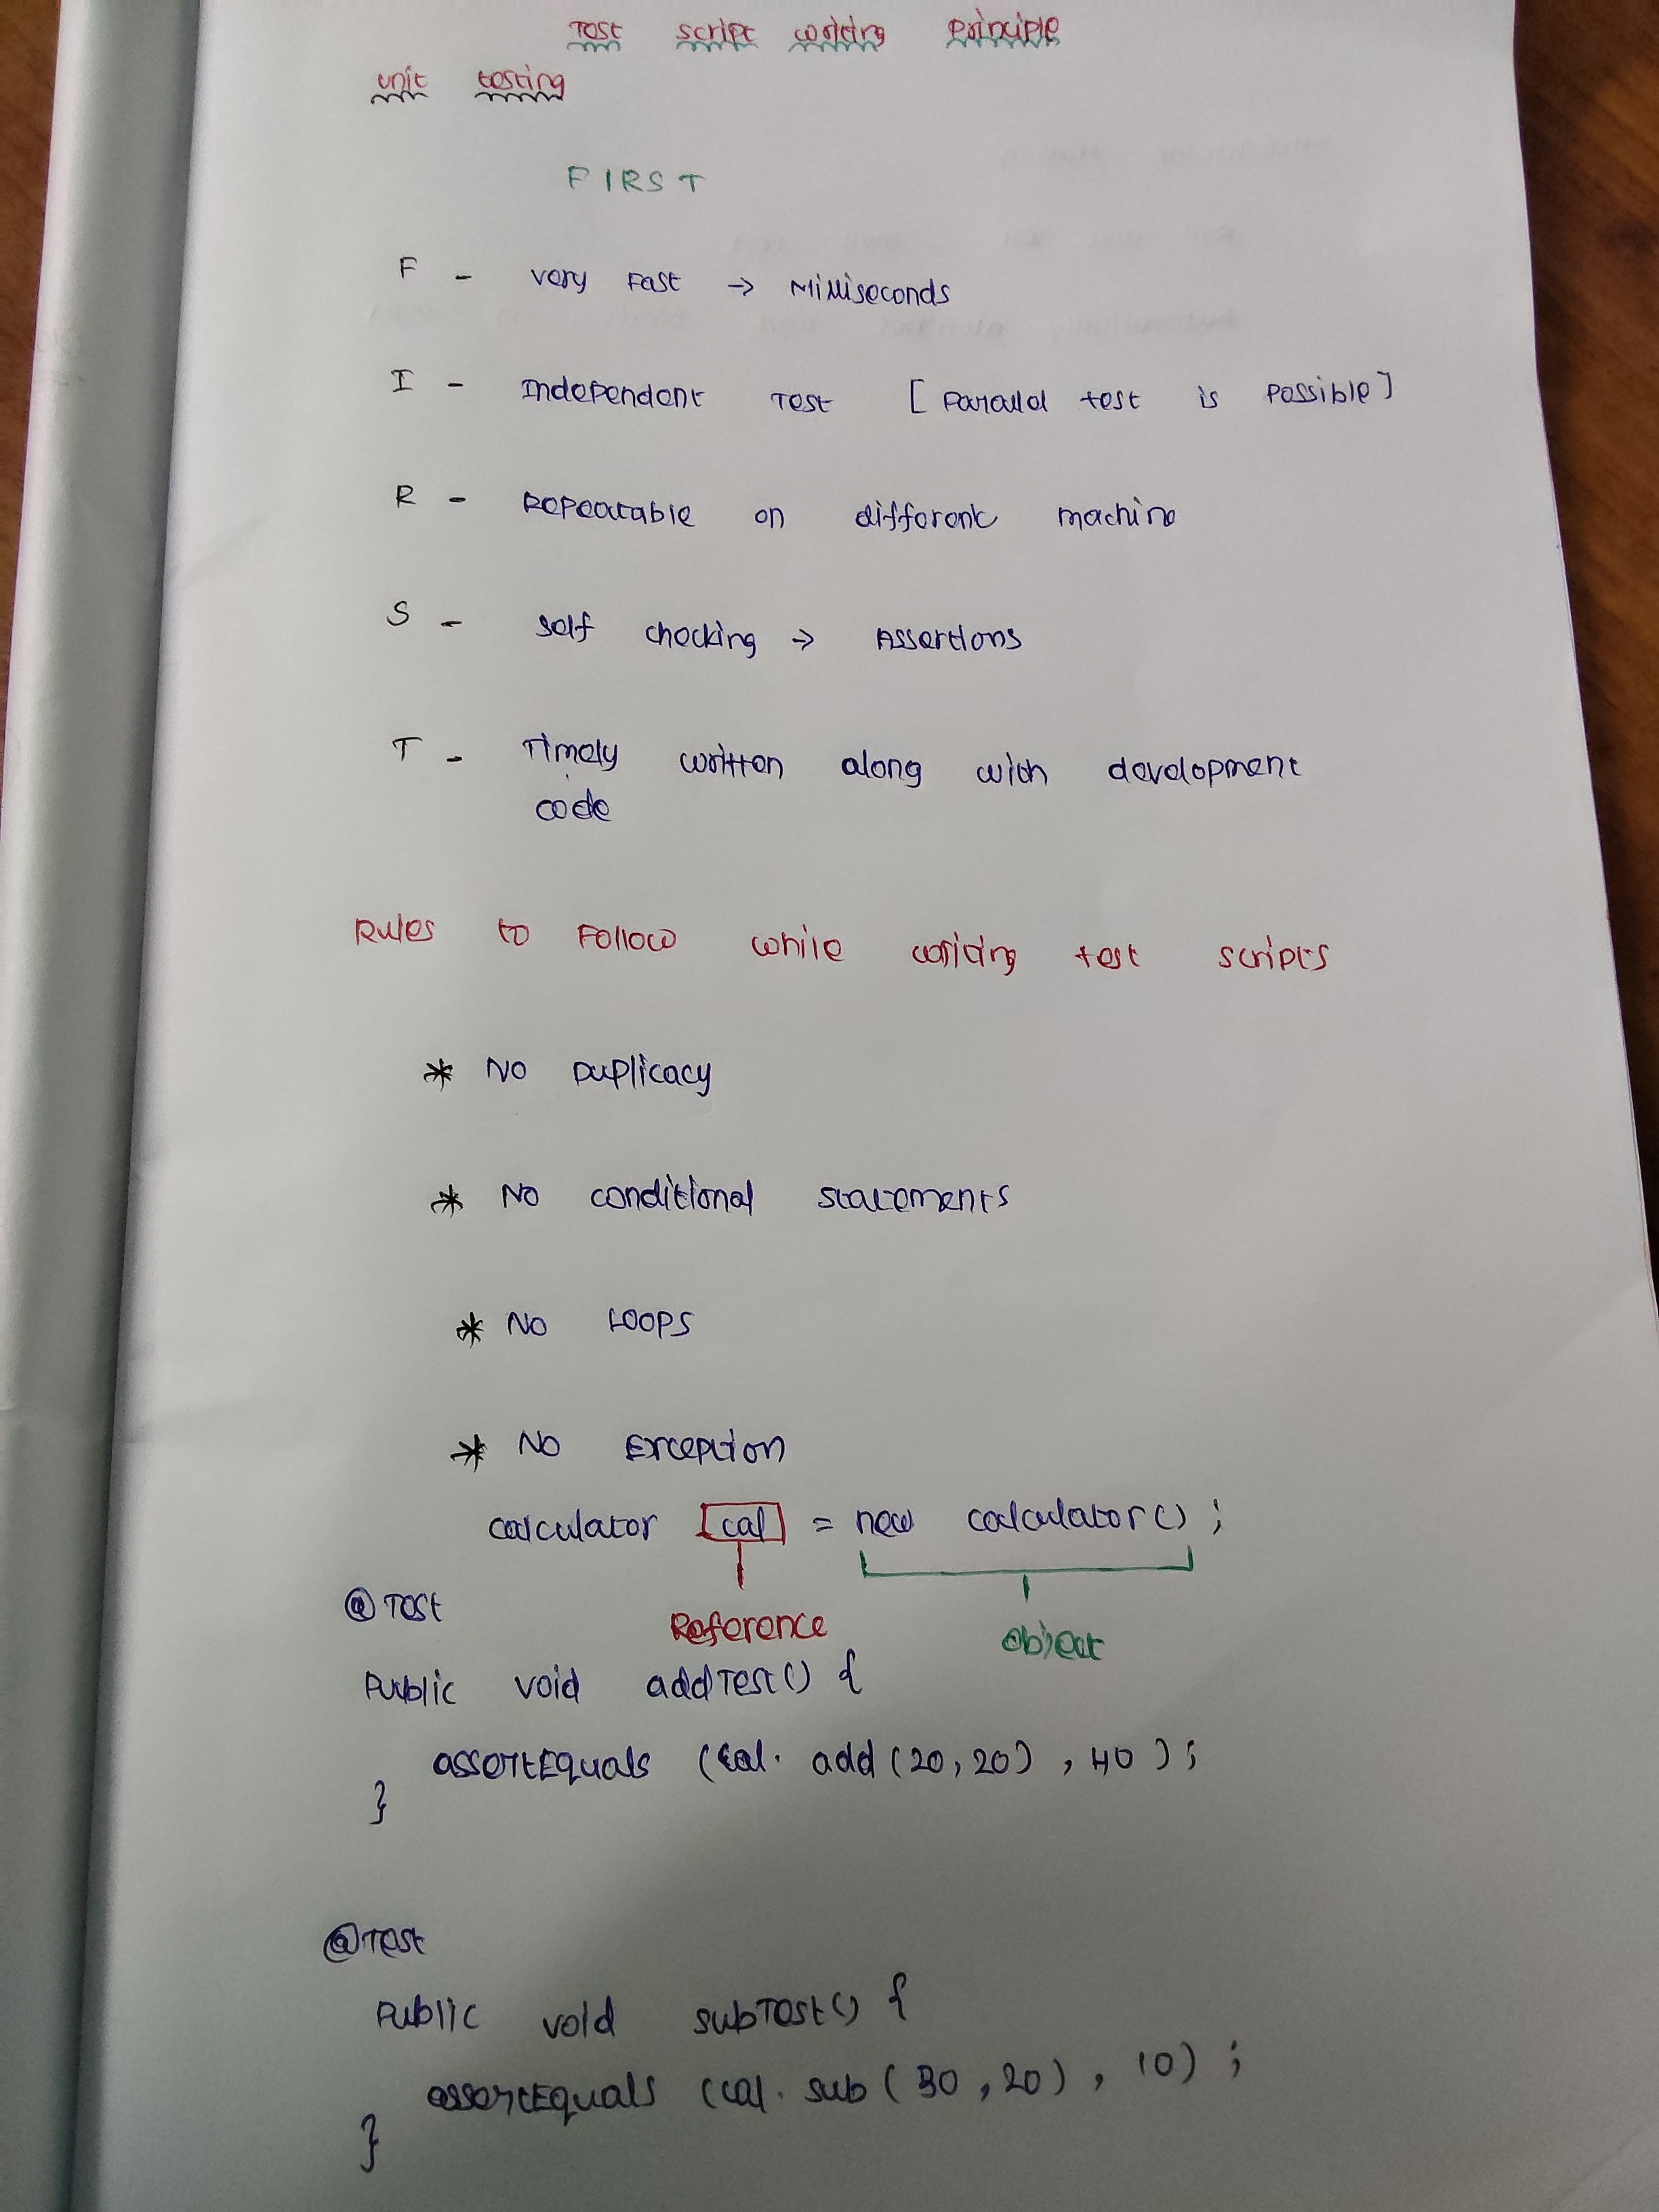 Test script writing principle
unit testing
FIRST
F - very Fast → Milliseconds
I - Independent Test [Parallel test is possible]
R - Repeatable on different machine
S - self checking → Assertions
T - Timely written along with development
code
Rules to Follow while writing test scripts
* No Duplicacy
* No conditional statements
* No Loops
* No Exception
calculator cal = new calculator();
@Test
Reference Object
Public void addTest() {
assertEquals (cal. add (20, 20), 40);
}
@Test
Public void subTest() {
assertEquals (cal. sub (30, 20), 10);
}